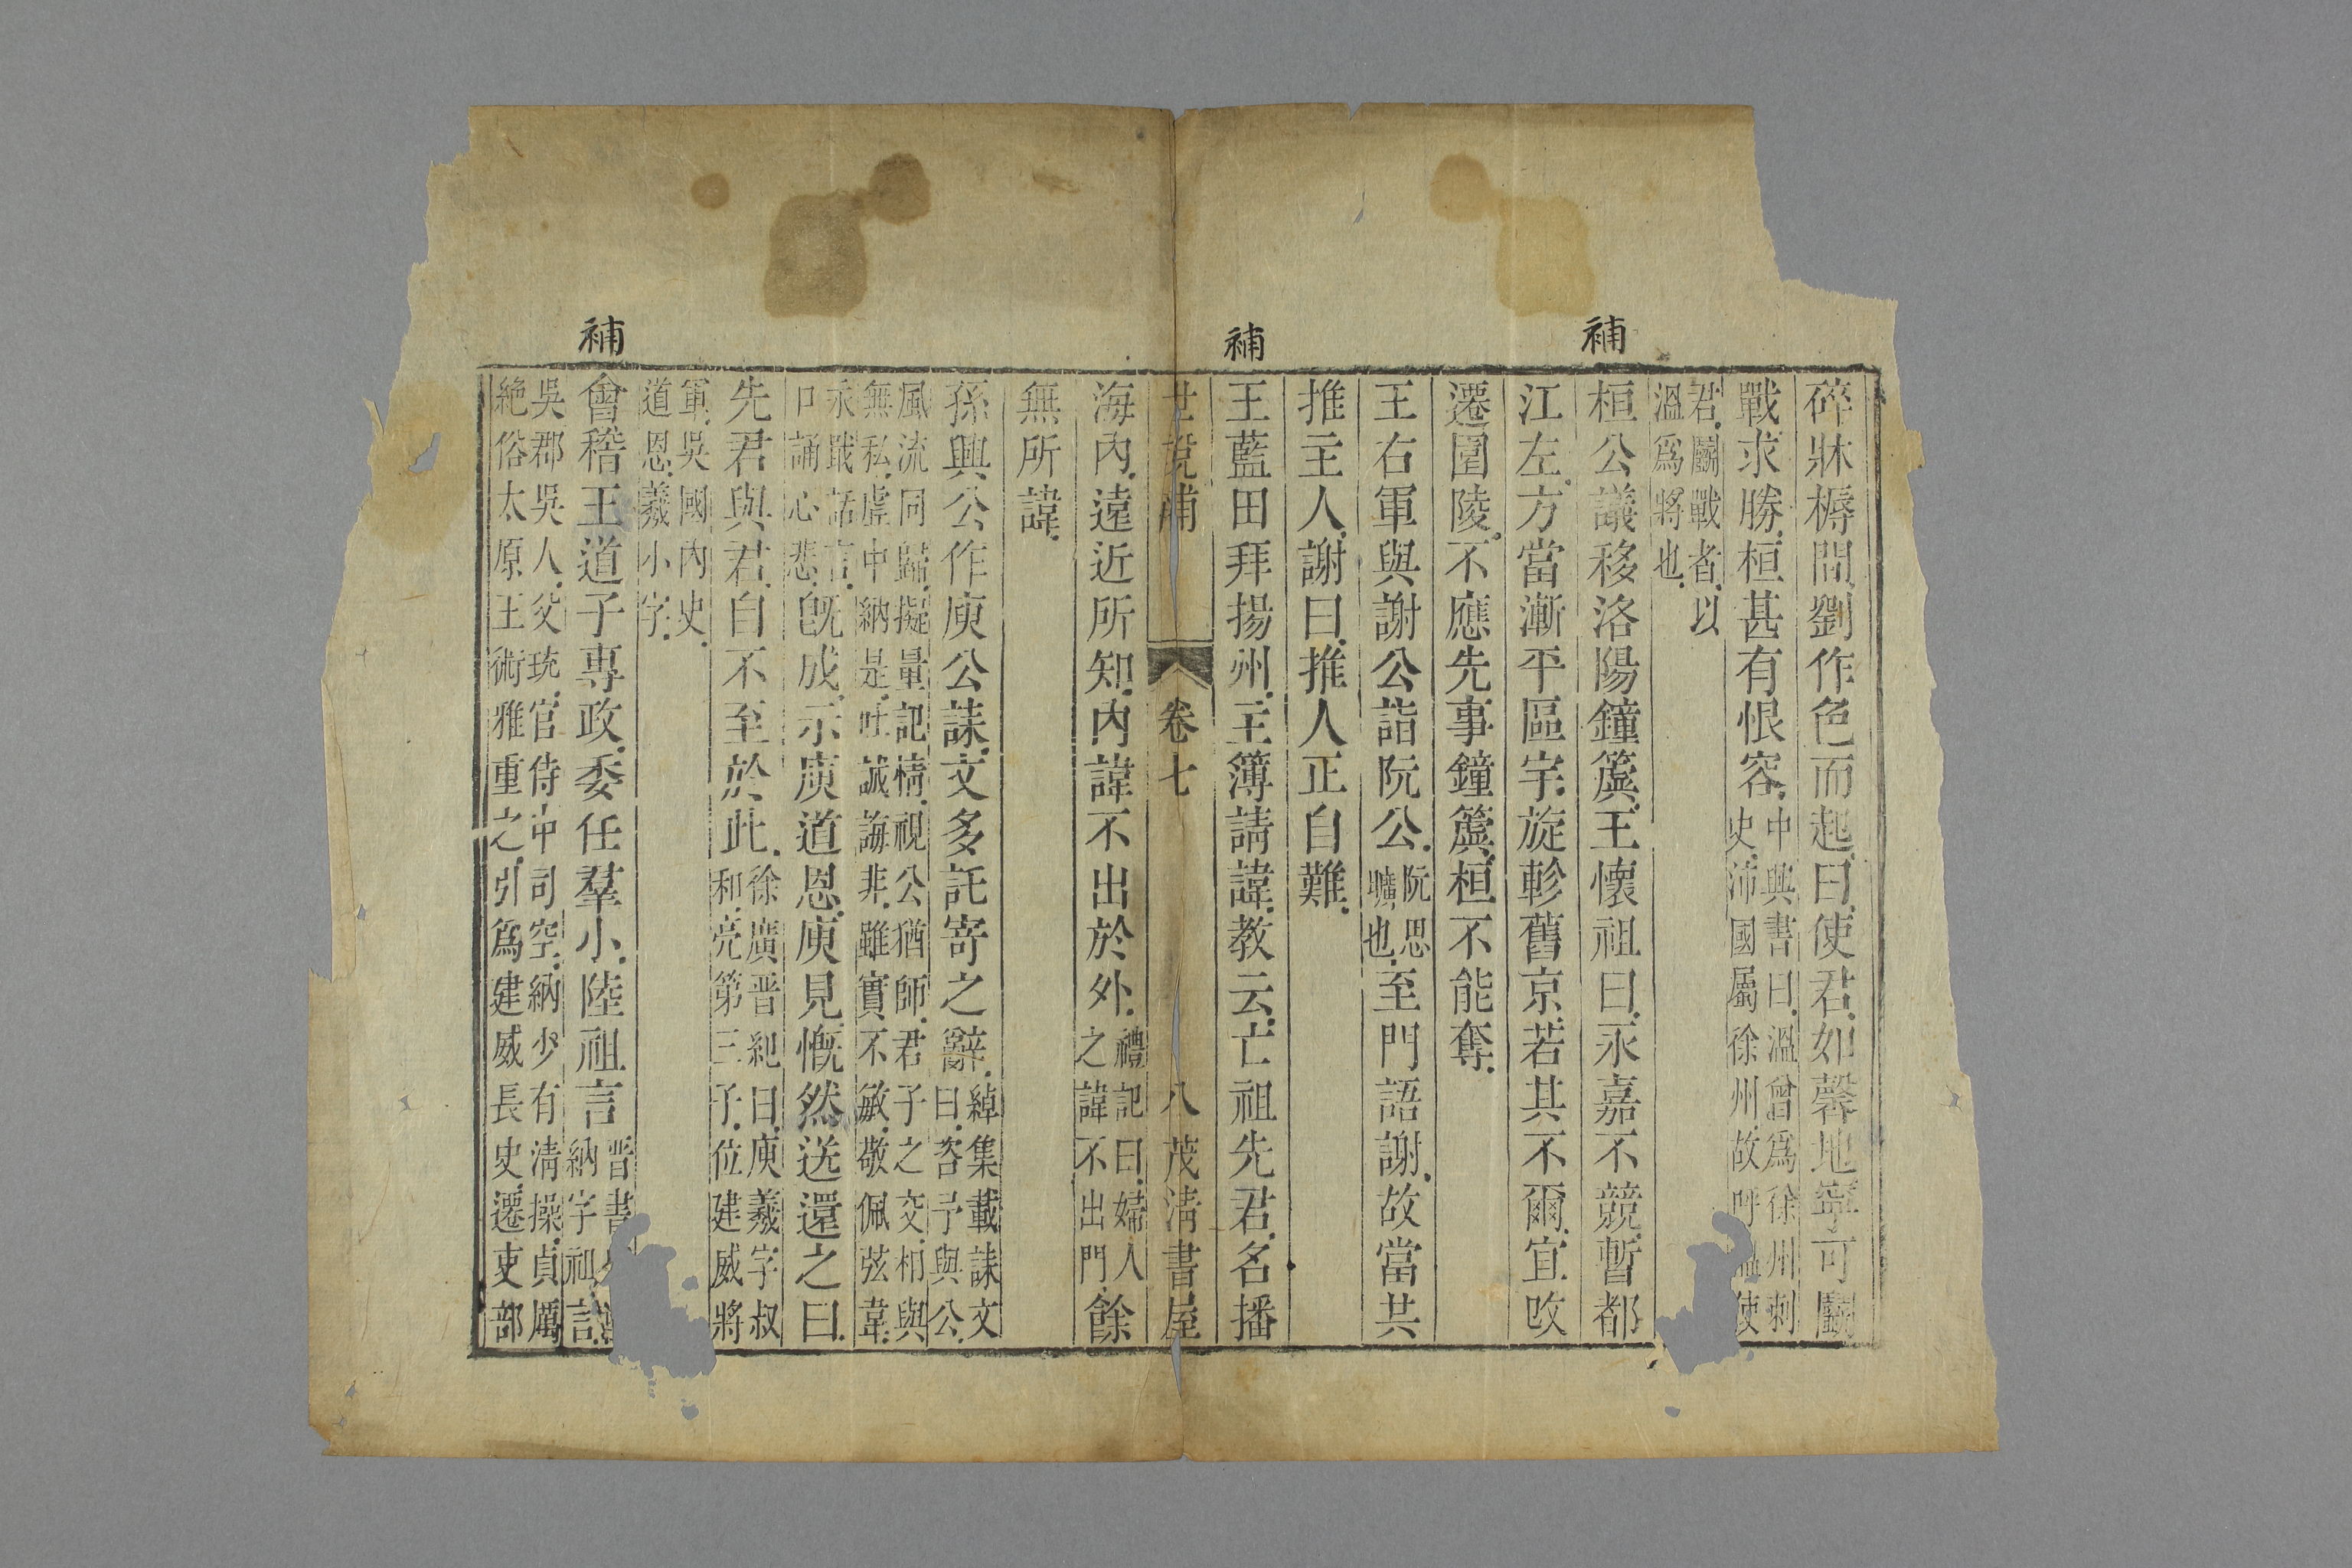 補
補
補
碎牀褥間劉作色而起.曰.使君.如馨地.寧可鬭
戰求勝.桓甚有恨容.中興書曰.溫曾爲徐州刺史.沛國屬徐州.故呼溫使
君.鬭戰者.以溫爲將也.
桓公議移洛陽鐘簴.王懷祖曰.永嘉不競.暫都
江左.方當漸平區宇.旋軫舊京.若其不爾.宜改
遷園陵.不應先事鐘簴.桓不能奪.
王右軍與謝公詣阮公.阮思曠也.至門語謝.故當共
推主人.謝曰.推人正自難.
王藍田拜揚州.主簿請諱.教云.亡祖先君.名播
世說補 卷七 八 茂清書屋
海內.遠近所知.內諱不出於外.禮記曰.婦人之諱不出門.餘
無所諱.
孫興公作庾公誄.文多託寄之辭.綽集載誄文曰.咨予與公.
風流同歸.擬量託情.視公猶師.君子之交.相與無私.虛中納是.吐誠誨非.雖實不敏.敬佩弦韋.
永戢話言.口誦心悲.旣成.示庾道恩.庾見慨然送還之曰.
先君與君.自不至於此.徐廣晋紀曰.庾羲字叔和.亮第三子.位建威將
軍.吳國內史.道恩.羲小字.
會稽王道子專政.委任羣小.陸祖言晋書納字祖言.
吳郡吳人.父玩.官侍中司空.納少有清操.貞厲絶俗太原王術雅重之.引爲建威長史.遷吏部